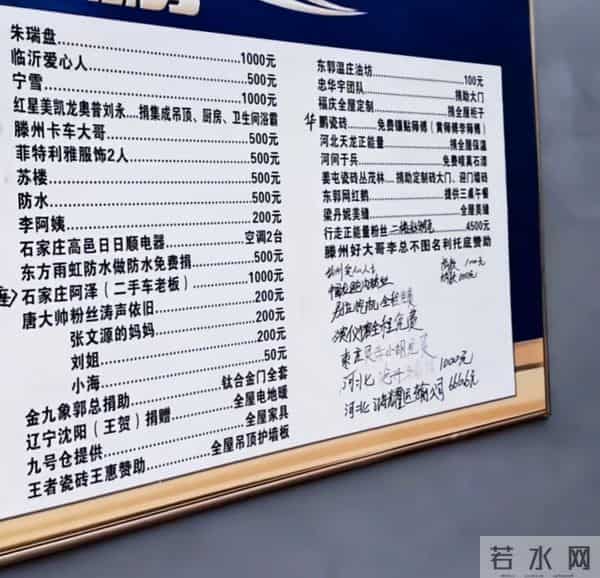 朱瑞盘 1000元
临沂爱心人 500元
宁雪 1000元
红星美凯龙奥普刘永....捐集成吊顶、厨房、卫生间浴霸
滕州卡车大哥 500元
菲特利雅服饰2人 500元
苏楼 500元
防水 500元
李阿姨 200元
石家庄高邑日日顺电器 空调2台
东方雨虹防水做防水免费捐 500元
石家庄阿泽（二手车老板） 1000元
唐大帅粉丝涛声依旧 200元
张文源的妈妈 200元
刘姐 200元
小海 50元
金九象郭总捐助 钛合金门全套
辽宁沈阳（王贺）捐赠 全屋电地暖
九号仓提供 全屋家具
王者瓷砖王惠赞助 全屋吊顶护墙板
东郭温庄油坊 100元
忠华宇团队 捐助大门
福庆全屋定制 捐全屋柜子
华鹏瓷砖 免费镶贴师傅（黄师傅李师傅）
河北天龙正能量 捐全屋保温
河间于兵 免费喷真石漆
姜屯瓷砖丛茂林....捐助定制砖大门、迎门墙砖
东郭网红鹅 提供三桌午餐
梁丹妮美缝 全屋美缝
行走正能量粉丝 4500元
滕州好大哥李总不图名利托底赞助
河北 1000元
河北 运输公司 6666元
若水网